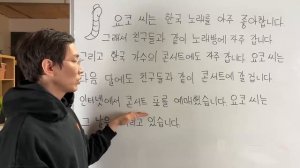 요코 씨는 한국 노래를 아주 좋아합니다.
그래서 친구들과 같이 노래방에 자주 갑니다.
그리고 한국 가수의 콘서트에도 자주 갑니다. 요코 씨는
다음 달에도 친구들과 같이 콘서트에 갈 겁니다.
인터넷에서 콘서트 표를 예매했습니다. 요코 씨는
그 날을 있습니다.